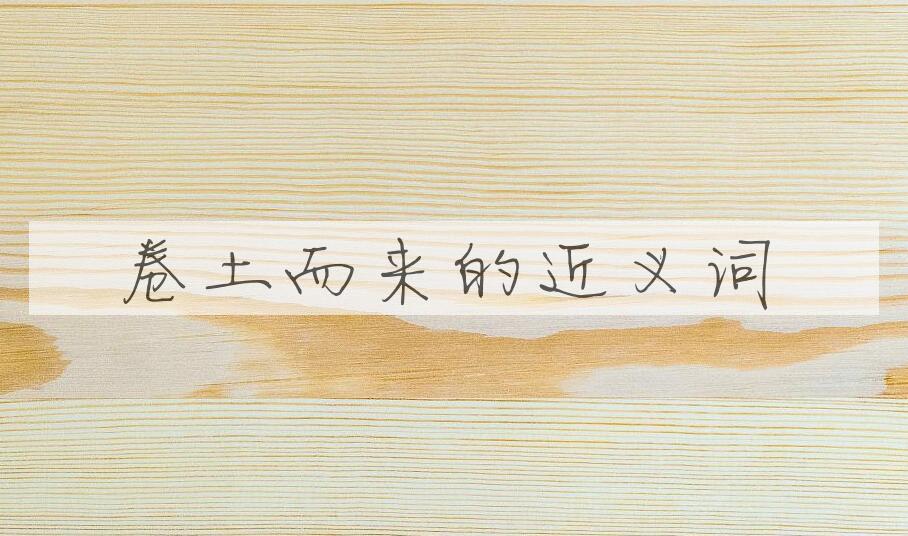 卷土而来的近义词